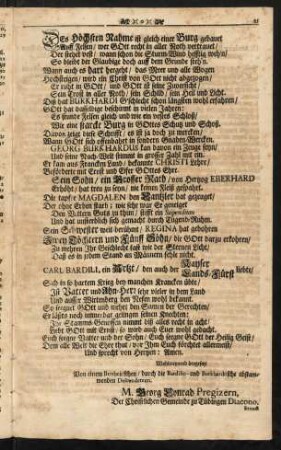 Des Höchsten Nahme ist gleich einer Burg gebauet
Auff Felsen; wer GOtt recht in aller Noth vertrauet/
Der stehet vest/ wann schon die Sturm-Wind hefftig weh'n/
So bleibt der Glaubige doch auff dem Grunde steh'n.
Wann auch es hart hergeht/ das Meer uns alle Wogen
Hochsteigen/ wird ein Christ von GOtt nicht abgezogen/
er ruht in GOtt/ und GOtt ist seine Zuversicht/
Sein Trost in aller Noth/ sein Schild/ sein Heil und Licht.
Daß hat BURKHARDS G'schlecht schon längsten wohl erfahren/
GOtt hat dasselbige beschirmt in vielen Jahren/
Es stunde Felsen gleich/ und wie ein vestes Schloß/
Wie eine starcke Burg in GOttes Schutz und Schoß.
Davon zeigt diese Schrifft/ es ist ja doch zu mercken/
Wann GOtt sich offenbahrt in seinen Gnaden-Wercken.
GEORG BURKHARDUS kan davon ein Zeuge seyn/
Und seine Nach-Welt stimmt in grosser Zahl mit ein.
Er kam aus Francken Land/ bekannte CHRISTI Lehre/
Beförderte mit Ernst und Eyfer GOttes Ehre.
Sein Sohn/ ein Grosser Rath/ von Hertzog EBERHARD
Erhöht/ hat treu zu seyn/ nie keinen Fleiß gespahrt.
Die tapfre MAGDALEN den Cantzler hat gezeuget/
Der ohne Erben starb; wie sehr war Er geneiget
Den Vättern Guts zu thun/ stifft ein Stipendium
Und hat unsterblich sich gemacht durch Tugend-Ruhm.
Sein Schwester weit berühmt/ REGINA hat gebohren
Zwey Töchtern und Fünff Söhn/ die GOtt darzu erkohren/
Zu mehren Ihr Geschlecht fast wie der Sternen Licht/
Daß es in jedem Stand an Männern fehle nicht.
CARL BARDILI, ein Artzt/ den auch der Kayser liebte/
Lands-Fürst
Sich in so hartem Krieg bey manchen Krancken übte/
Ist Vatter und Ahn-Herr sehr vieler in dem Land
Und ausser Wirtemberg den Nefen wohl bekannt.
So sorget GOtt und wehet den Saamen der Gerechten/
Er läßts noch immer hat geringen seinen Knechten:
Ihr Stammes-Genossen nimmt diß alles recht in acht/
liebt GOtt mit Ernst/ so wird auch Euer wohl gedacht.
Euch segne Vatter und der Sohn/ Euch segne GOtt der Heilig Geist/
Dem alle Welt die Ehre thut/ vor Ihm Euch förchtet allermeist/
Und sprecht von Hertzen: Amen.
Von einem Burckardischen/ durch die Bardili- und Burckardische abstam-
menden
M. Georg Conrad Pregizern,
Der Christlichen Gemeinde zu Tübingen Diacono.